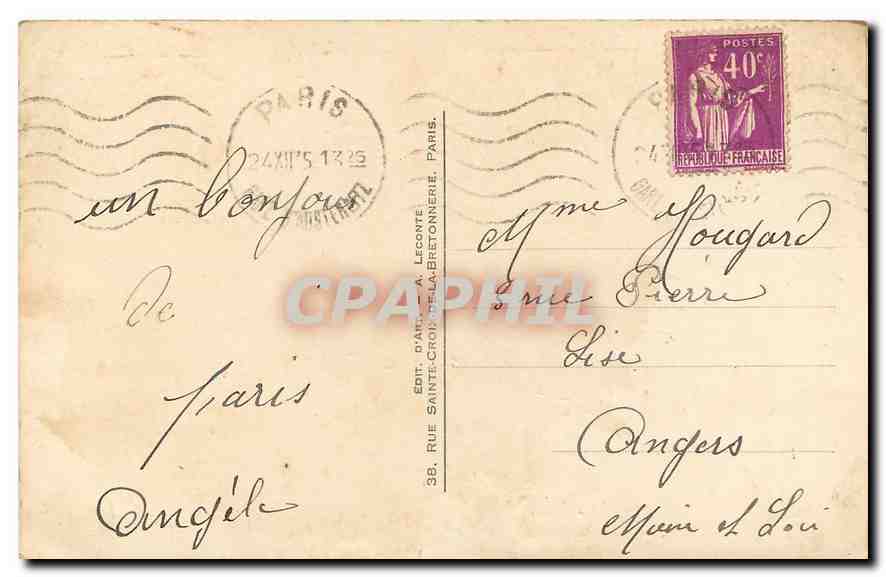 PARIS
24XII35 1325
GARE D'AUSTERLITZ
POSTES
40c
REPUBLIQUE FRANÇAISE
un bonjour
de
paris
Angèle
EDIT. D'ART. – A. LECONTE
38, RUE SAINTE-CROIX-DE-LA-BRETONNERIE, PARIS.
CPAPHIL
Mme Hougard
rue Pierre
Lise
Angers
Maine et Loire